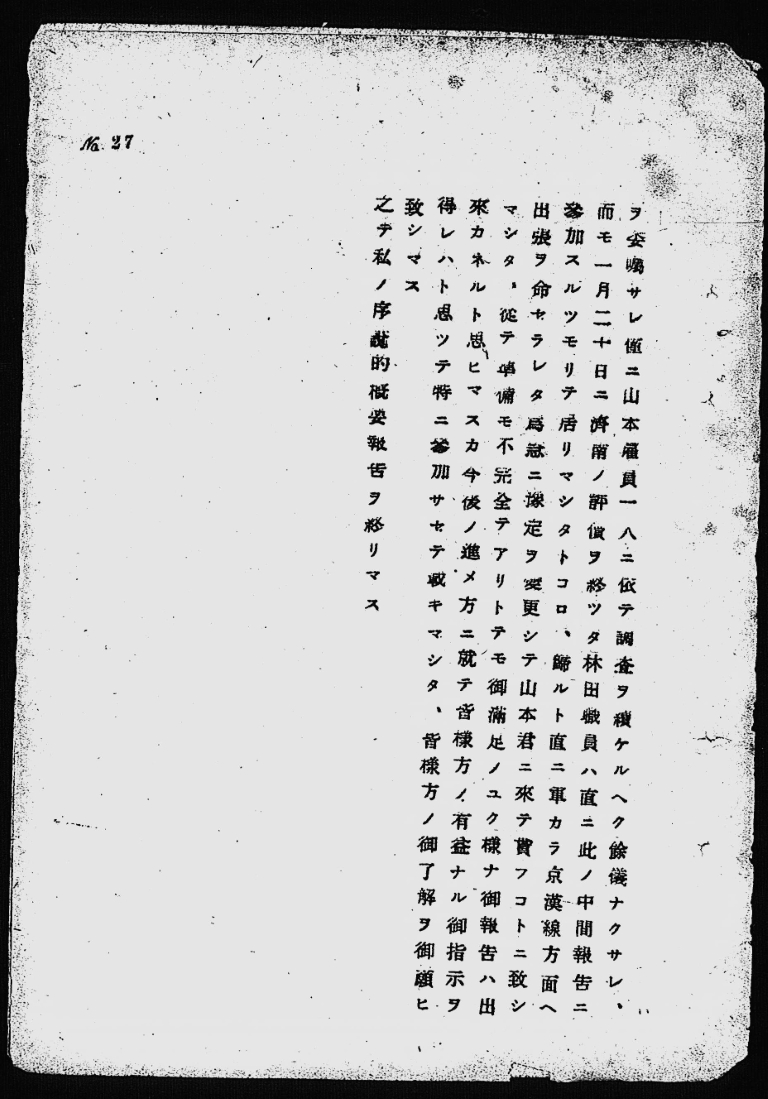 No. 27
ヲ委囑サレ僅ニ山本雇員一人ニ依テ調査ヲ續ケルヘク餘儀ナクサレ、
而モ一月二十日ニ濟南ノ評價ヲ終ツタ林田職員ハ直ニ此ノ中間報告ニ
參加スルツモリテ居リマシタトコロ、歸ルト直ニ軍カラ京漢線方面ヘ
出張ヲ命セラレタ爲急ニ豫定ヲ變更シテ山本君ニ來テ貰フコトニ致シ
マシタ、從テ準備モ不完全テアリトテモ御滿足ノユク樣ナ御報告ハ出
來カネルト思ヒマスカ今後ノ進メ方ニ就テ皆樣方ノ有益ナル御指示ヲ
得レハト思ツテ特ニ參加サセテ戴キマシタ、皆樣方ノ御了解ヲ御願ヒ
致シマス
之テ私ノ序說的槪要報告ヲ終リマス